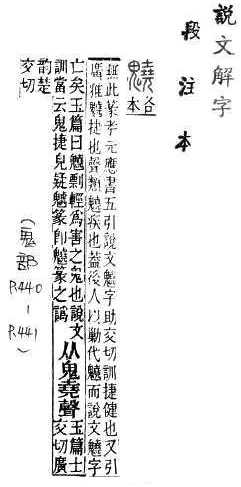 說文解字
段注本
各本
無此篆考元應書五引說文字助交切訓捷健也又引
廣雅捷也聲類疾也蓋後人以勦代而說文字
亡矣玉篇曰剽輕爲害之鬼也說文
訓當云鬼捷皃疑篆卽篆之譌
从鬼堯聲
玉篇士
交切廣
韵楚
交切
(鬼部 P.440-P.441)